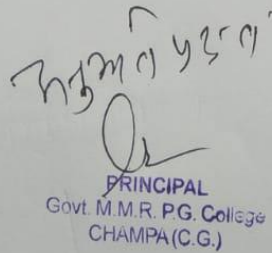 अनुमति प्रदान
PRINCIPAL
Govt. M.M.R. P.G. College
CHAMPA (C.G.)